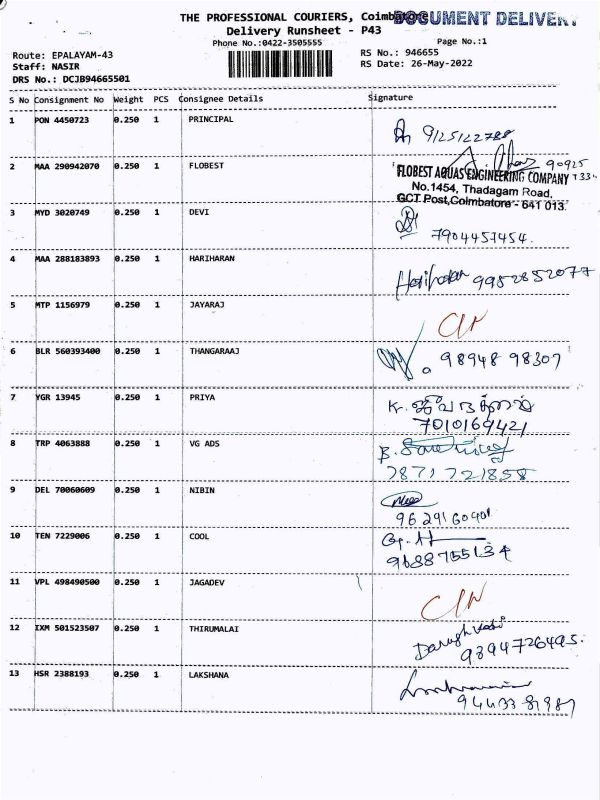 THE PROFESSIONAL COURIERS, Coimbatore
DOCUMENT DELIVERY
Delivery Runsheet - P43
Phone No.:0422-3505555
Page No.:1
Route: EPALAYAM-43
RS No.: 946655
Staff: NASIR
RS Date: 26-May-2022
DRS No.: DCJB94665501
S No Consignment No Weight PCS Consignee Details Signature
1 PON 4450723 0.250 1 PRINCIPAL
9125122788
2 MAA 290942070 0.250 1 FLOBEST
90925
FLOBEST AQUAS ENGINEERING COMPANY
No.1454, Thadagam Road,
GCT Post,Coimbatore - 641 013.
3 MYD 3020749 0.250 1 DEVI
7904457454.
4 MAA 288183893 0.250 1 HARIHARAN
Hariharan 9952852077
5 MTP 1156979 0.250 1 JAYARAJ
6 BLR 560393400 0.250 1 THANGARAAJ
98948 98307
7 YGR 13945 0.250 1 PRIYA
7010169421
8 TRP 4063888 0.250 1 VG ADS
7871721858
9 DEL 70060609 0.250 1 NIBIN
10 TEN 7229006 0.250 1 COOL
9688755134
11 VPL 498490500 0.250 1 JAGADEV
12 IXM 501523507 0.250 1 THIRUMALAI
9894726495.
13 HSR 2388193 0.250 1 LAKSHANA